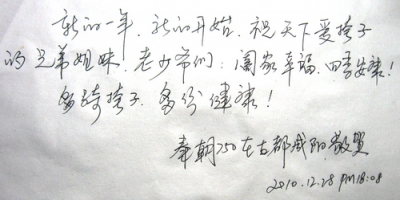 新的一年,新的开始,祝天下爱挎子
的兄弟姐妹,老少爷们:阖家幸福,四季安康!
多骑挎子,多份健康!
秦朝750在古都咸阳敬贺
2010.12.28 PM 18:08